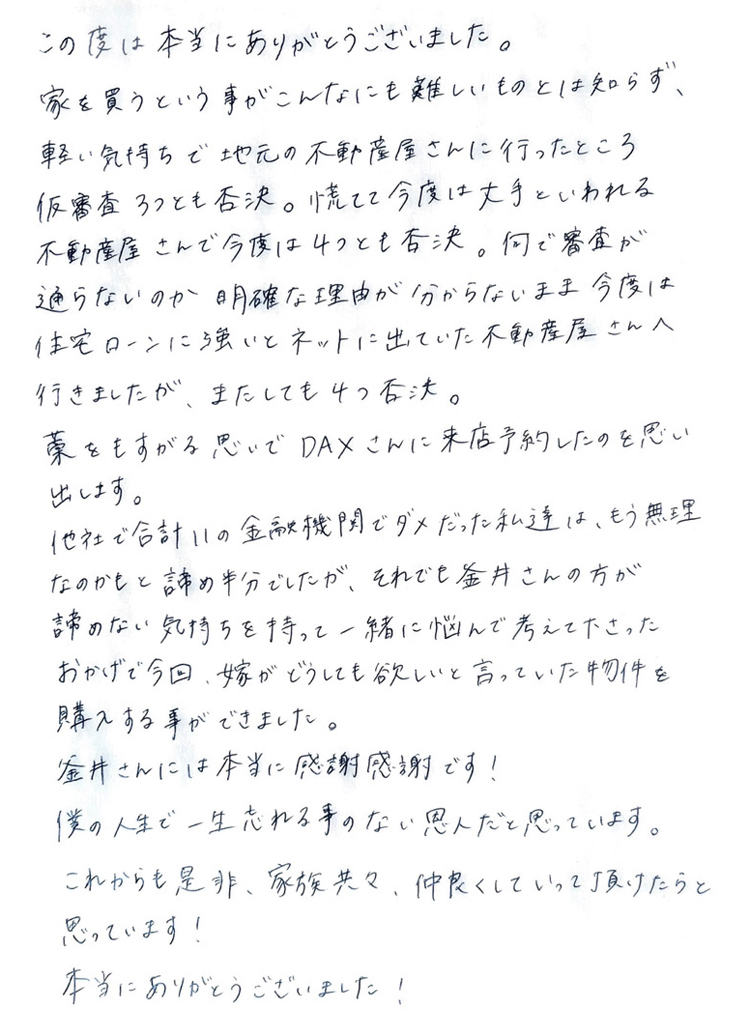 この度は本当にありがとうございました。
家を買うという事がこんなにも難しいものとは知らず、
軽い気持ちで地元の不動産屋さんに行ったところ
仮審査3つとも否決。慌てて今度は大手といわれる
不動産屋さんで今度は4つとも否決。何で審査が
通らないのか明確な理由が分からないまま今度は
住宅ローンに強いとネットに出ていた不動産屋さんへ
行きましたが、またしても4つ否決。
藁をもすがる思いでDAXさんに来店予約したのを思い
出します。
他社で合計11の金融機関でダメだった私達は、もう無理
なのかもと諦め半分でしたが、それでも釜井さんの方が
諦めない気持ちを持って一緒に悩んで考えて下さった
おかげで今回、嫁がどうしても欲しいと言っていた物件を
購入する事ができました。
釜井さんには本当に感謝感謝です！
僕の人生で一生忘れる事のない恩人だと思っています。
これからも是非、家族共々、仲良くしていって頂けたらと
思っています！
本当にありがとうございました！